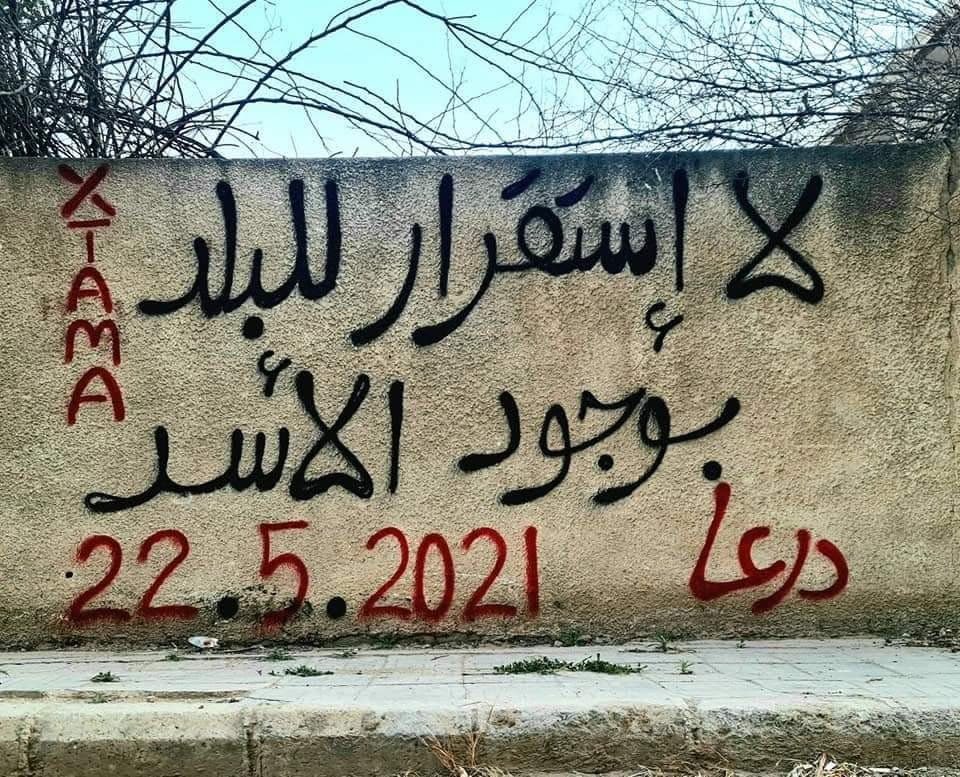 لا إستقرار للبلد
بوجود الأسد
درعا
22.5.2021
XTAMA